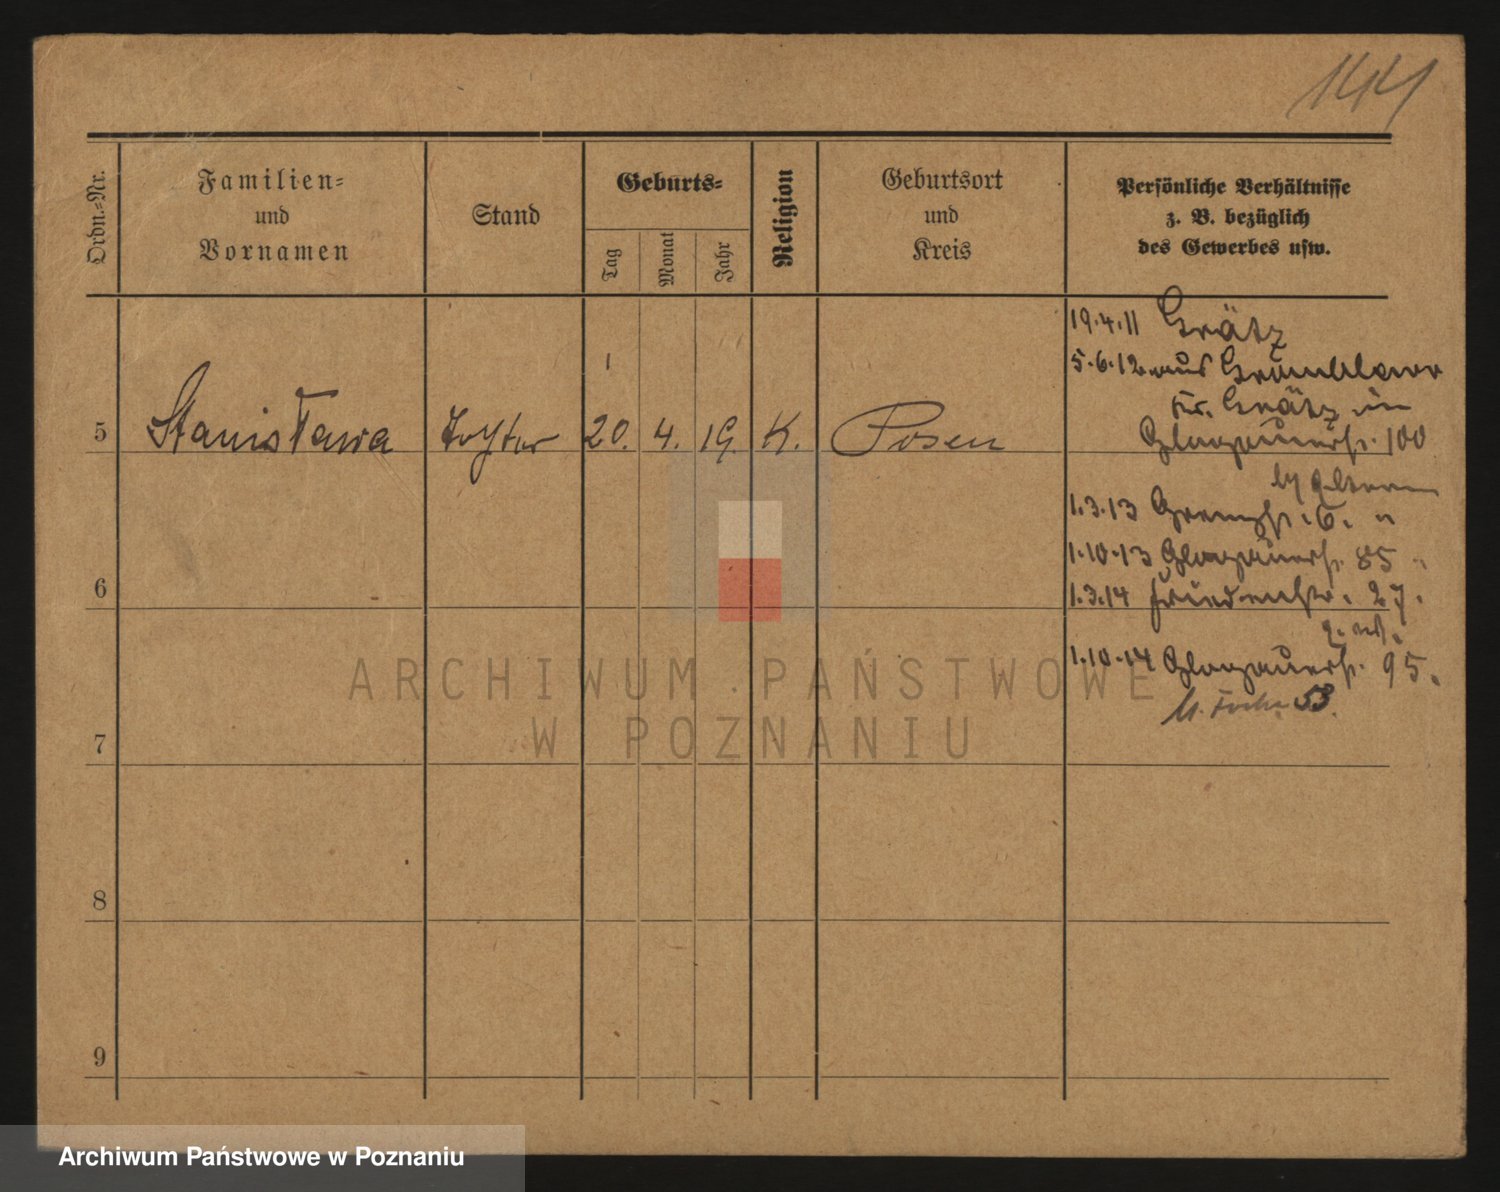 144
Ordn.-Nr.
Familien-
und
Vornamen
Stand
Geburts-
Tag
Monat
Jahr
Religion
Geburtsort
und
Kreis
Persönliche Verhältnisse
z. B. bezüglich
des Gewerbes usw.
19.4.11 Grätz
5.6.12 aus
Kr. Grätz in
Glogauerstr. 100
5 Stanisława Tochter 20. 4. 19. K. Posen
by Eltern
1.3.13 Grenzstr. 6. "
1.10.13 Glogauerstr. 85 "
6
1.3.14 Friedenstr. 27.
1.10.14 Glogauerstr. 95.
M. Focha 53.
7
8
9
ARCHIWUM PAŃSTWOWE
W POZNANIU
Archiwum Państwowe w Poznaniu